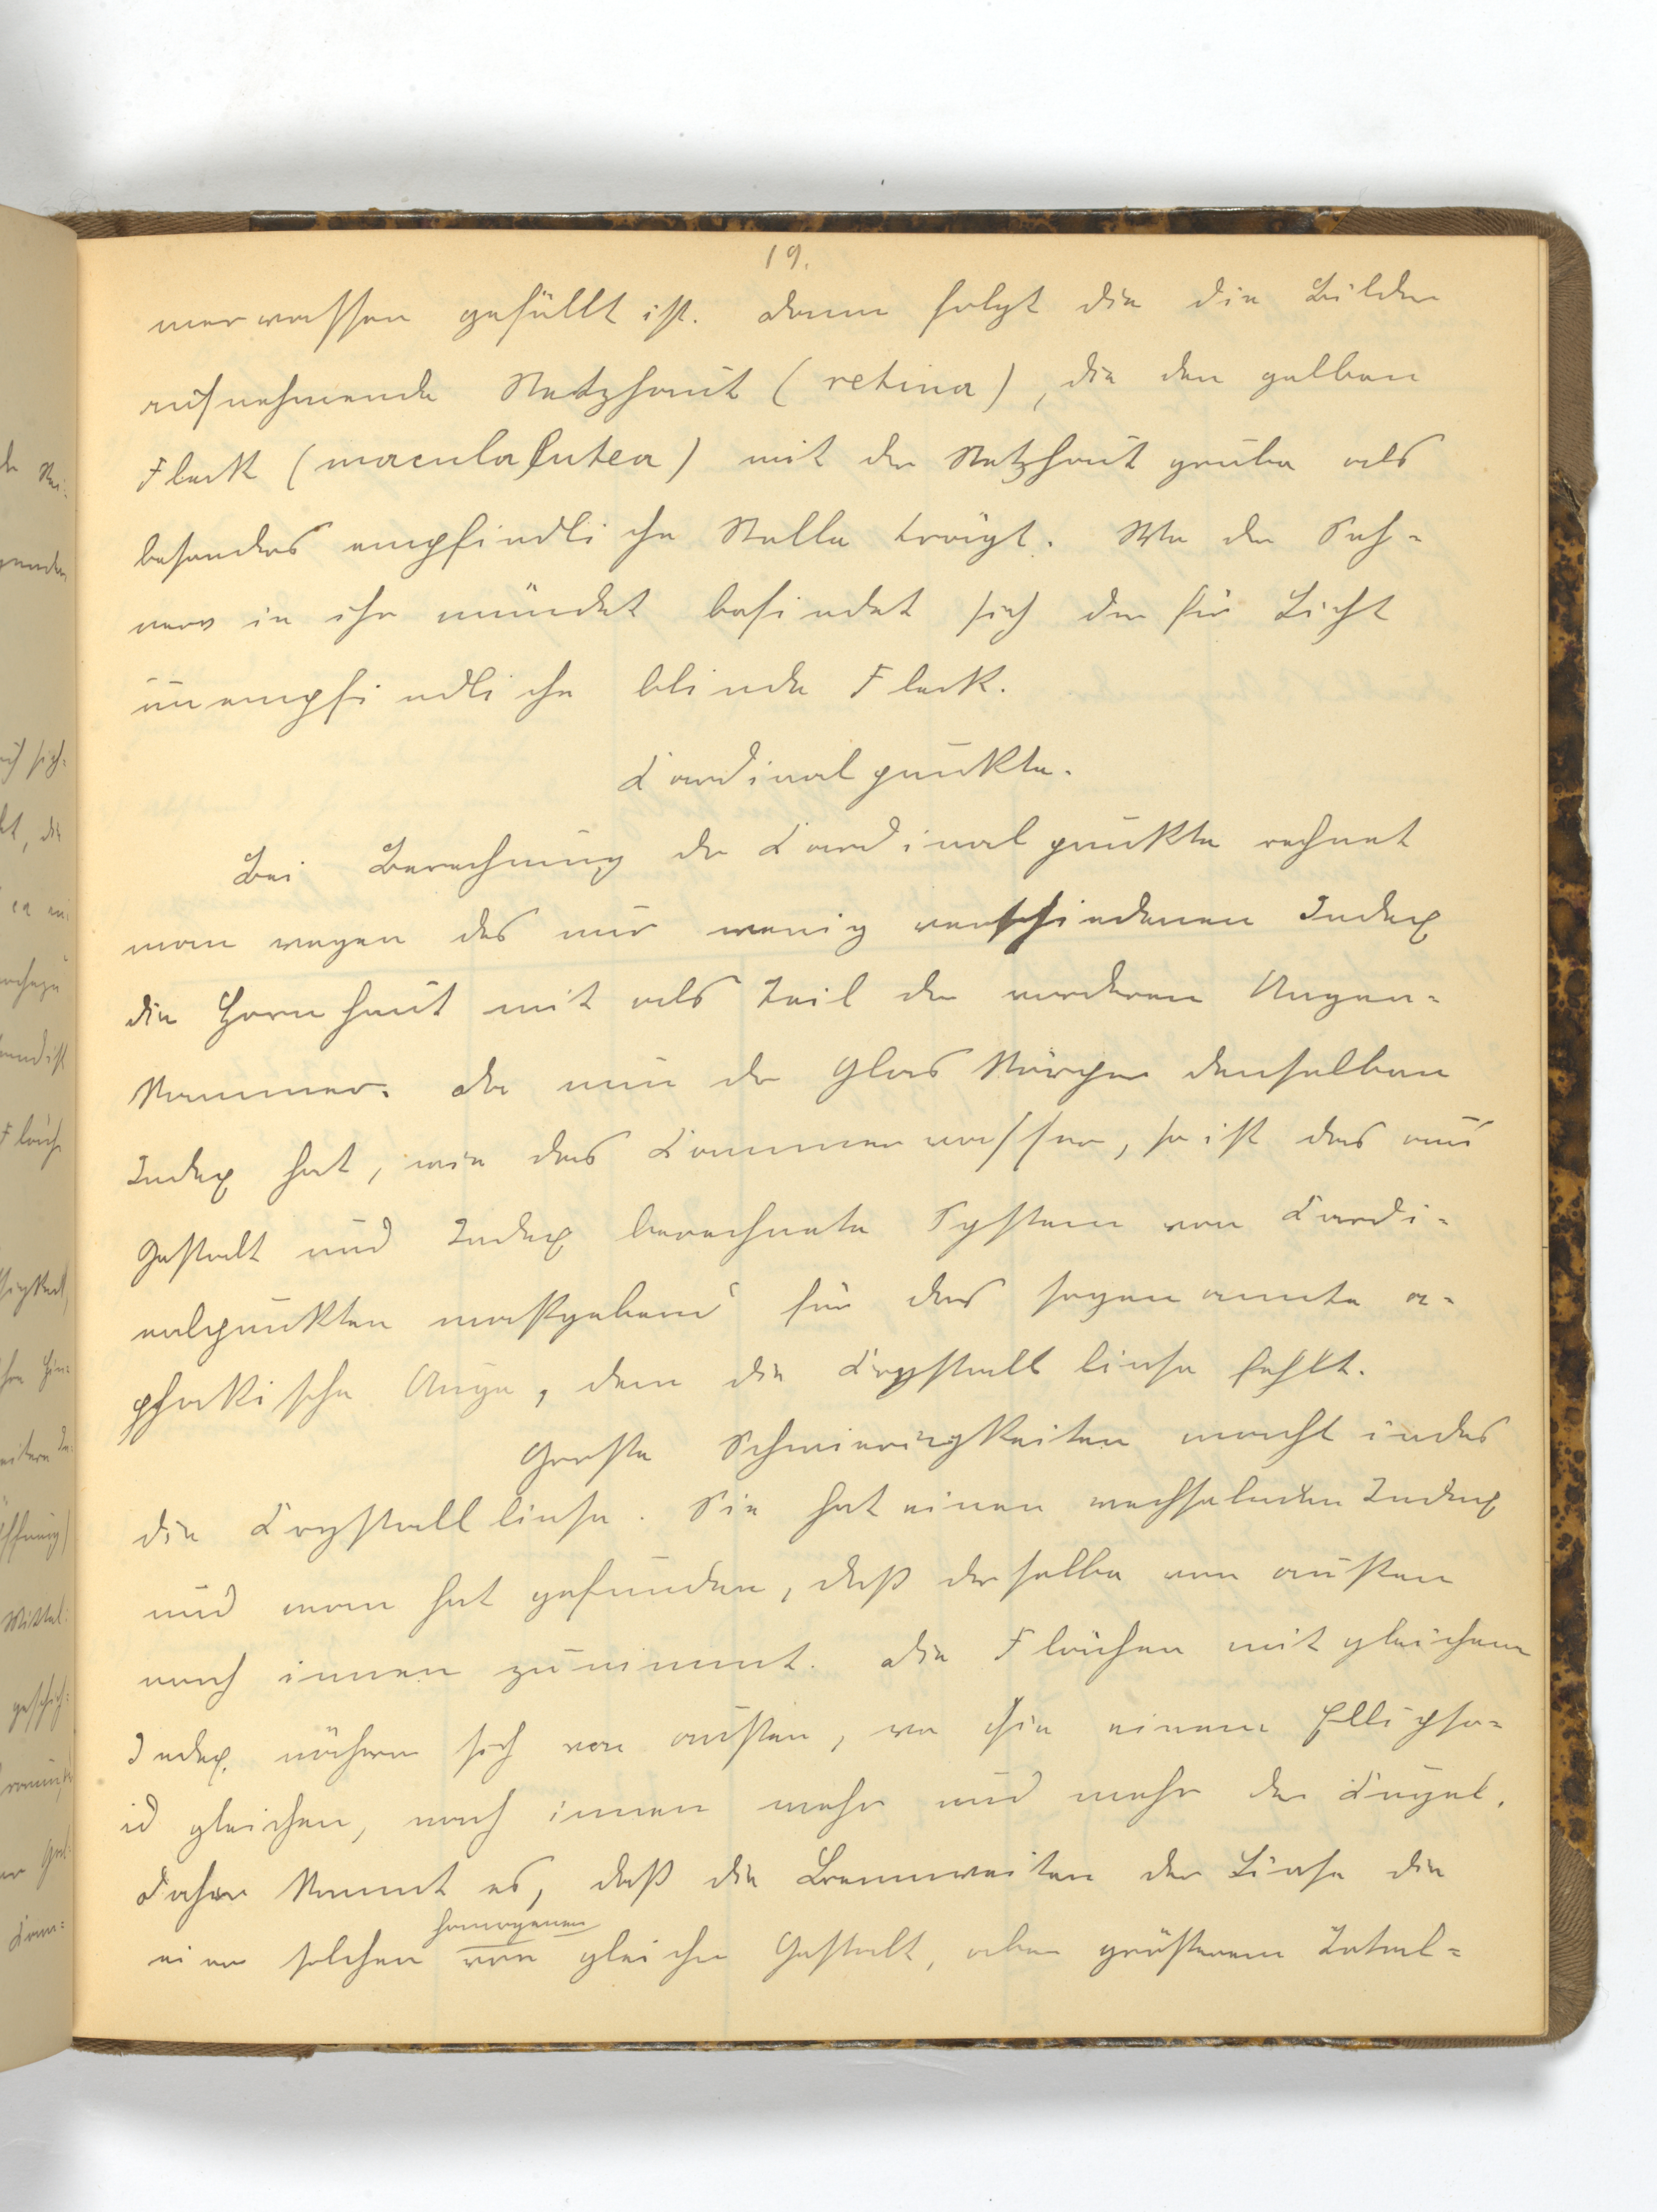 19.
merwassen gefüllt ist. Dann folgt die die Bilder
aufnehmende Netzhaut (retina), die den gelben
Fleck (macula lutea) mit der Netzhautgrube als
besonders empfindliche Stelle trägt. Wo der Seh-
nerv in ihr mündet befindet sich der für Licht
unempfindliche blinde Fleck.
Cardinalpunkte.
Bei Berechnung der Cardinalpunkte rechnet
man wegen des nur wenig verschiedenen Index
die Hornhaut mit als Teil der vorderen Augen-
kammer. Da nun der Glaskörper denselben
Index hat, wie das Cammerwasser, so ist das aus
Gestalt und Index berechnete System von Cardi-
nalpunkten maßgebend für das sogenannte a-
phakische Auge, dem die Crystalllinse fehlt.
Große Schwierigkeiten macht indes
die Crystalllinse. Sie hat einen wechselnden Index
und man hat gefunden, daß derselbe von außen
nach innen zunimmt. Die Flächen mit gleichem
Index nähern sich von außen, wo sie einem Ellipso-
id gleichen, nach innen mehr und mehr der Kugel.
Daher kommt es, daß die Brennweiten der Linse die
homogenen
einer solchen von gleicher Gestalt, aber größerem Total-